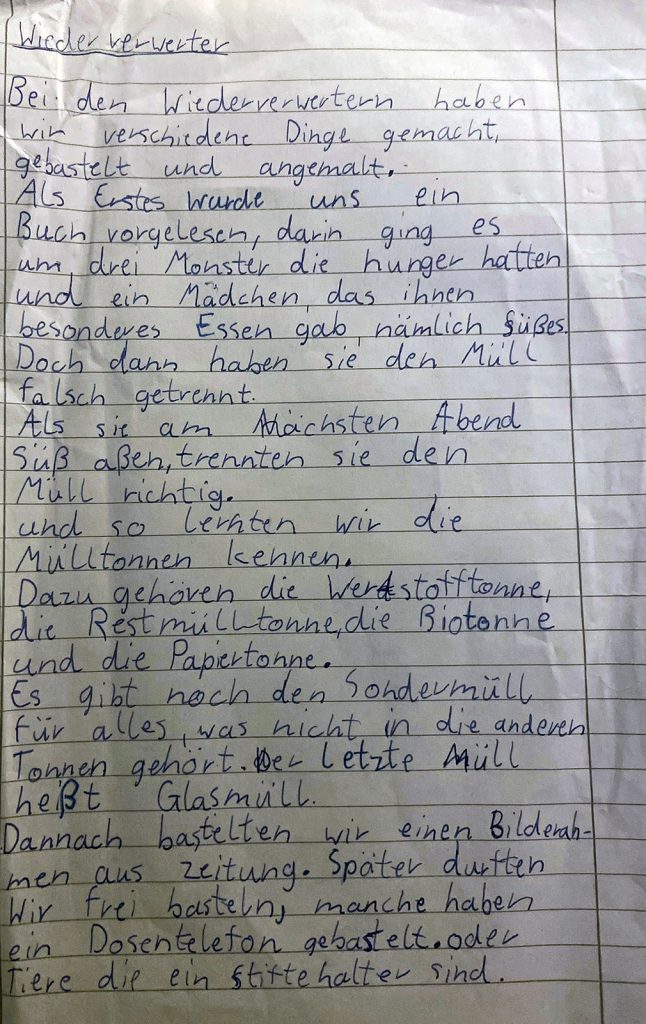 Wiederverwerter
Bei den Wiederverwertern haben
wir verschiedene Dinge gemacht,
gebastelt und angemalt.
Als Erstes wurde uns ein
Buch vorgelesen, darin ging es
um drei Monster die hunger hatten
und ein Mädchen, das ihnen
besonderes Essen gab, nämlich süßes.
Doch dann haben sie den Müll
falsch getrennt.
Als sie am Nächsten Abend
Süß aßen, trennten sie den
Müll richtig.
und so lernten wir die
Mülltonnen kennen.
Dazu gehören die Wertstofftonne,
die Restmülltonne, die Biotonne
und die Papiertonne.
Es gibt noch den Sondermüll
für alles, was nicht in die anderen
Tonnen gehört. Der letzte Müll
heißt Glasmüll.
Dannach bastelten wir einen Bilderah-
men aus zeitung. Später durften
Wir frei basteln, manche haben
ein Dosentelefon gebastelt. oder
Tiere die ein stiftehalter sind.